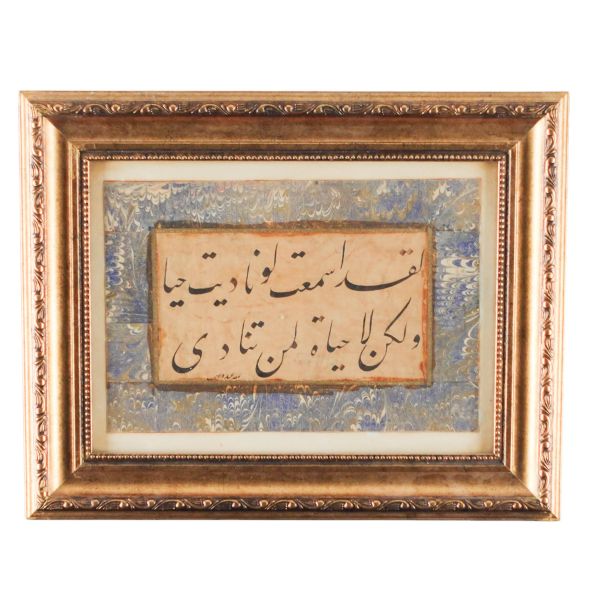 لقد اسمعت لو ناديت حيا
ولكن لا حياة لمن تنادى